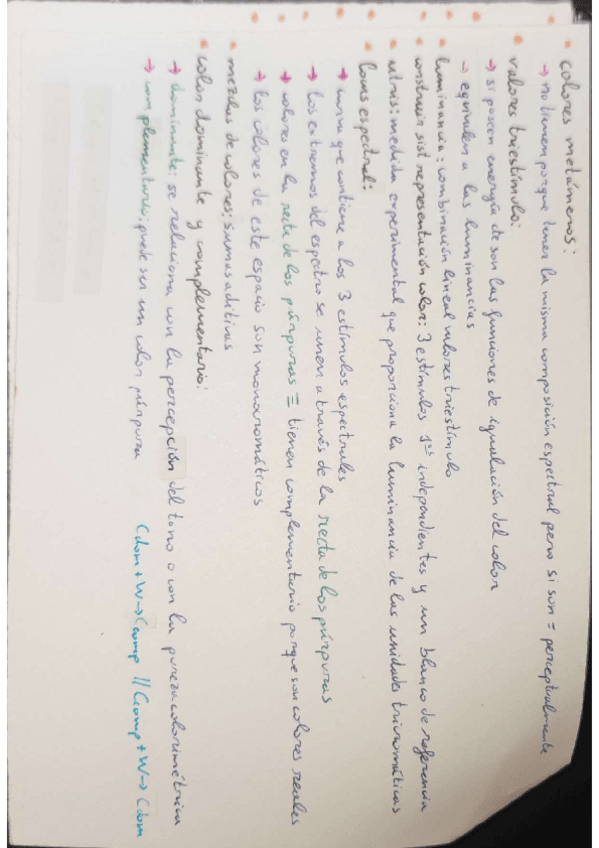 • colores metámeros:
→ no tienen porque tener la misma composición espectral pero si son = perceptualmente
• valores triestímulo:
→ si poseen energía de son las funciones de igualación del color
→ equivalen a las luminancias
• luminancia: combinación lineal valores triestímulo
• construir sist representación color: 3 estímulos 1ºs independientes y un blanco de referencia
• utrus: medida experimental que proporciona la luminancia de las unidades tricromáticas
• locus espectral:
→ curva que contiene a los 3 estímulos espectrales
→ Los extremos del espectro se unen a través de la recta de los púrpuras
→ colores en la recta de los púrpuras = tienen complementario porque son colores reales
→ Los colores de este espacio son monocromáticos
• mezclas de colores: sumas aditivas
• color dominante y complementario:
→ dominante: se relaciona con la percepción del tono o con la pureza colorimétrica
→ complementario: puede ser un color púrpura Cdom + W → Ccomp || Ccomp + W → Cdom